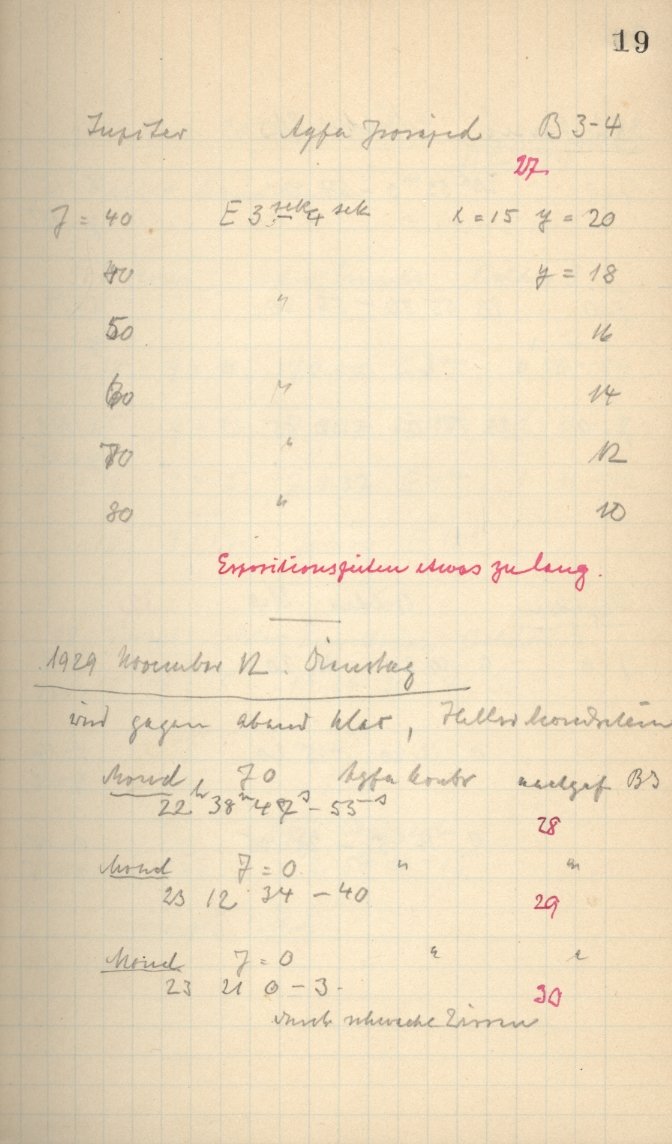 19
Jupiter Agfa B 3-4
27
J = 40 E 3 sek - 4 sek x = 15 y = 20
40 y = 18
50 " 16
60 " 14
70 " 12
80 " 10
Expositionszeiten etwas zu lang.
1929 November 12. Dienstag
wird gegen abend klar, Heller Mondschein
Mond J 0 Agfa Kontr B3
22h 38m 47s - 55s
28
Mond J = 0 " "
23 12 34 - 40
29
Mond J = 0 " "
23 21 0 - 3.
30
durch schwache Cirren